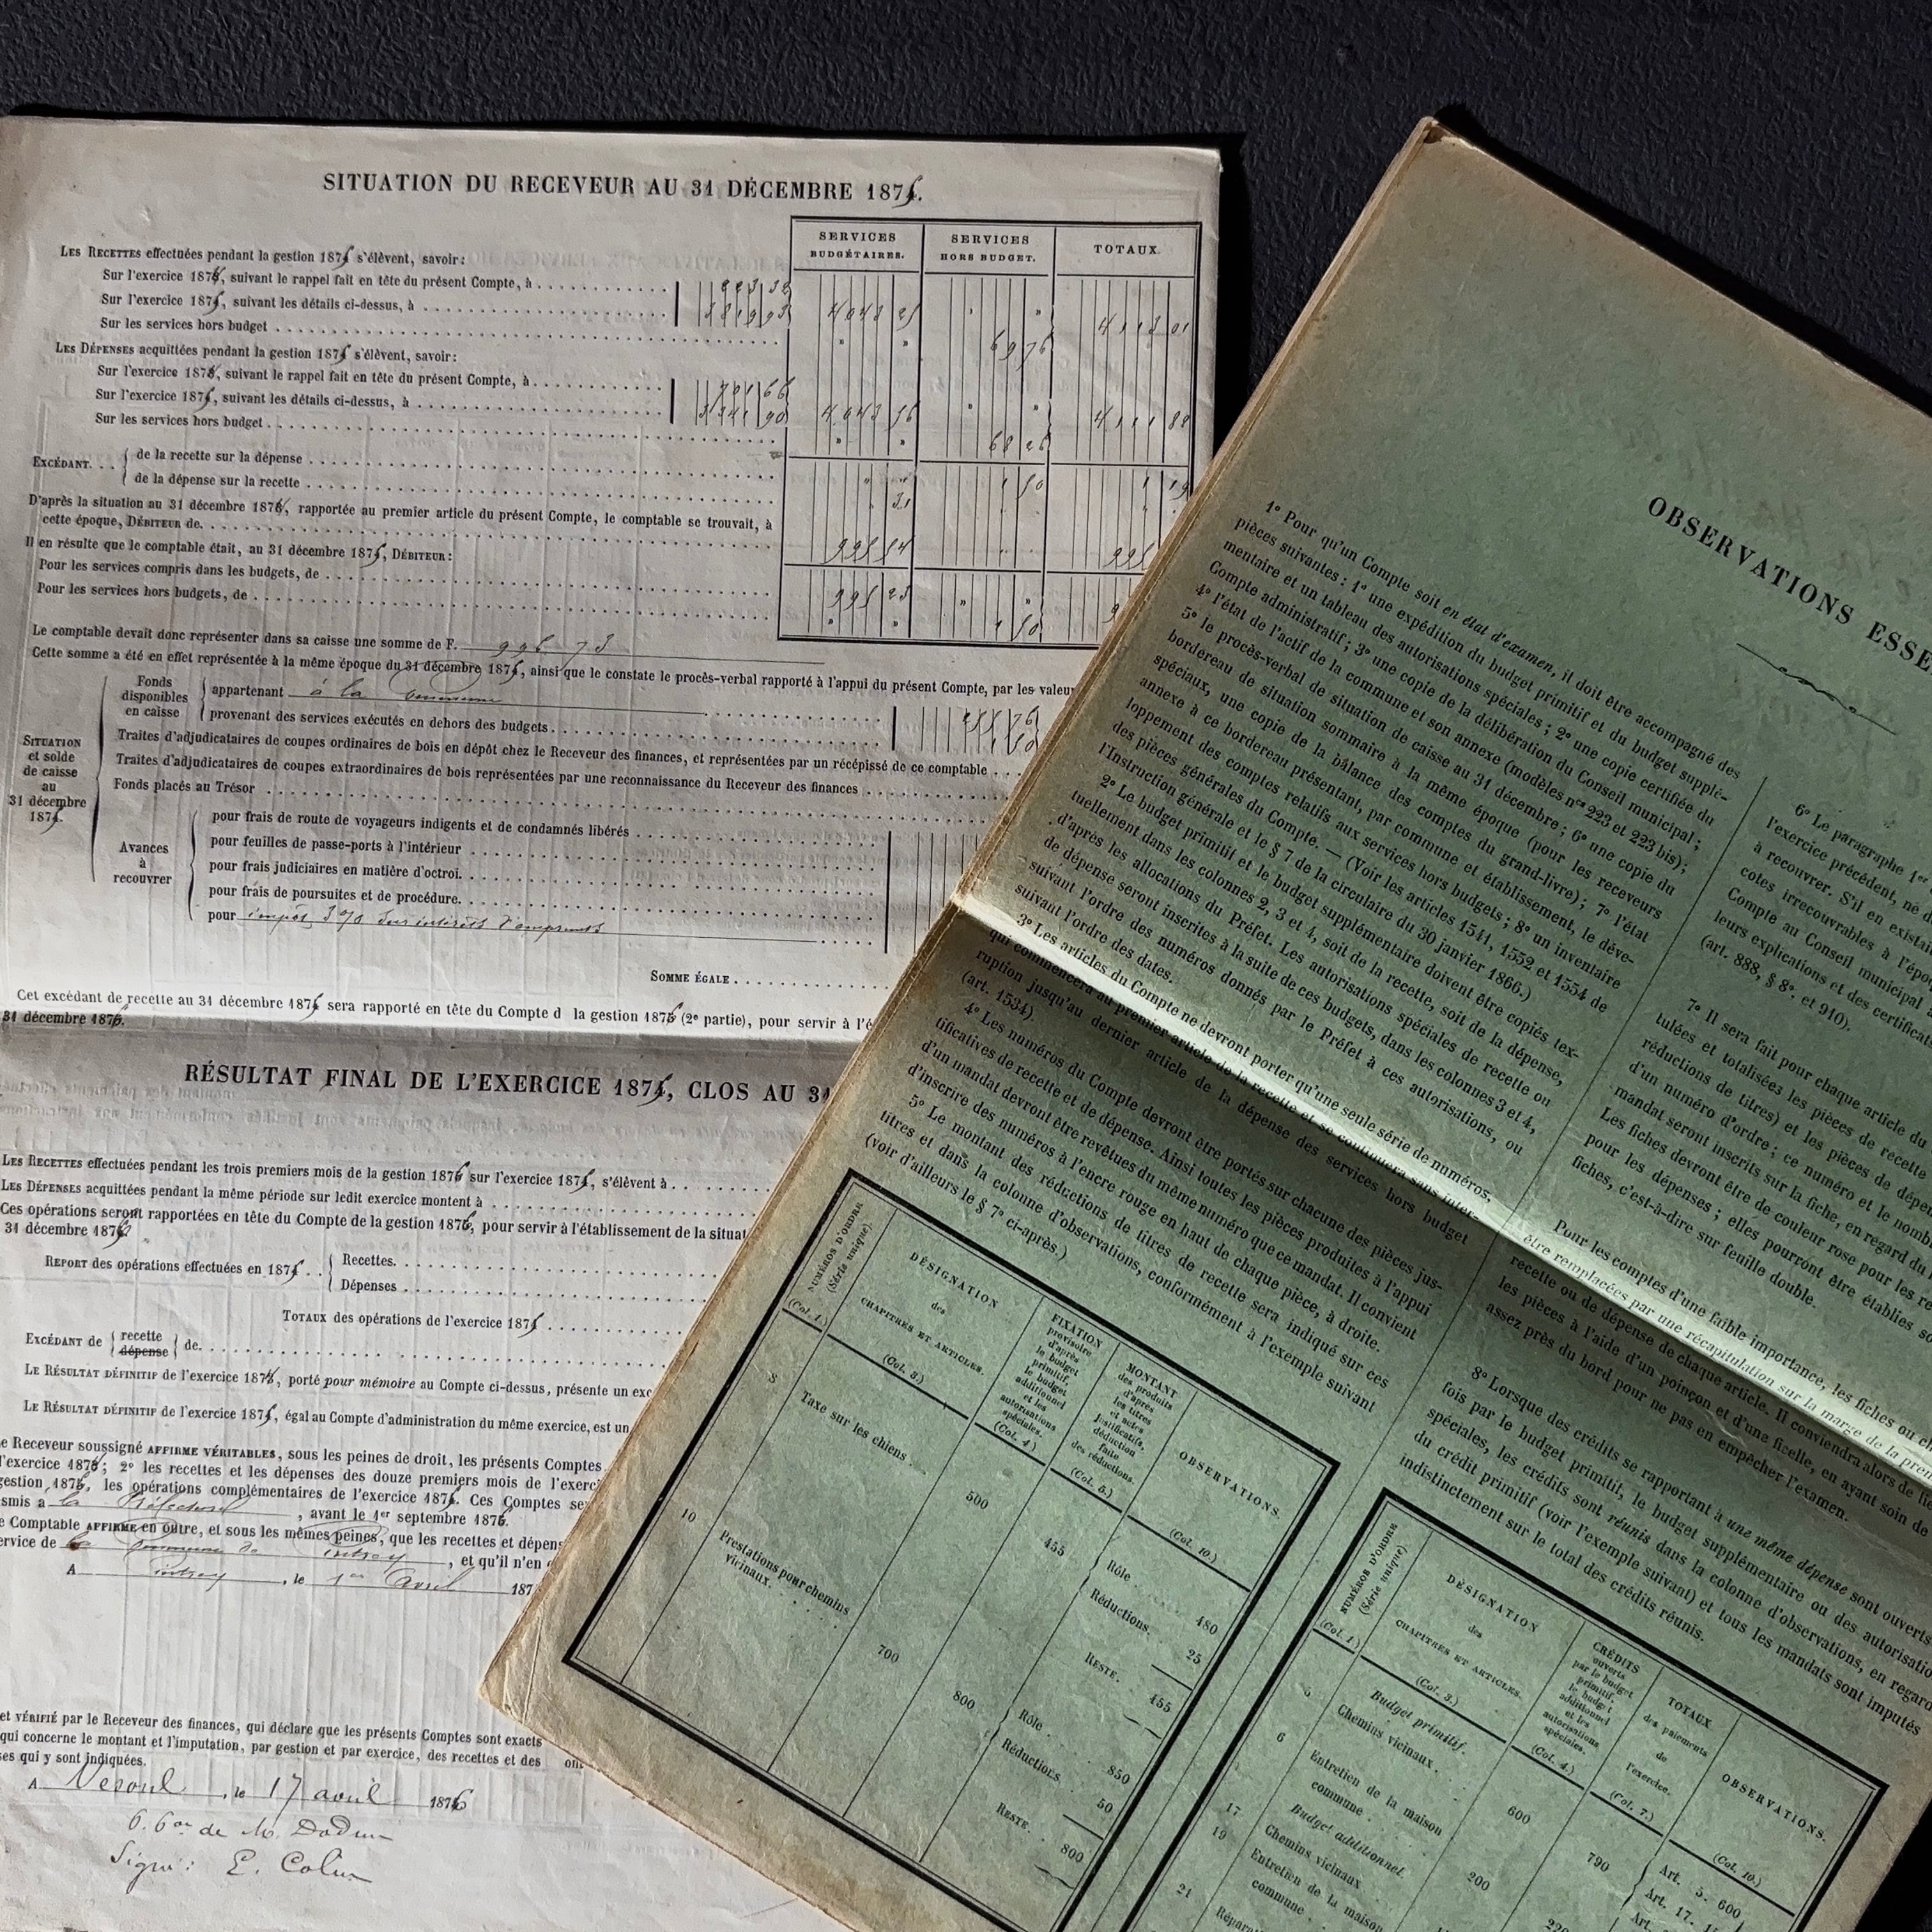 SITUATION DU RECEVEUR AU 31 DÉCEMBRE 1875.
SERVICES BUDGÉTAIRES.
SERVICES HORS BUDGET.
TOTAUX.
LES RECETTES effectuées pendant la gestion 1875 s'élèvent, savoir:
Sur l'exercice 1874, suivant le rappel fait en tête du présent Compte, à
Sur l'exercice 1875, suivant les détails ci-dessus, à
Sur les services hors budget
LES DÉPENSES acquittées pendant la gestion 1875 s'élèvent, savoir:
Sur l'exercice 1874, suivant le rappel fait en tête du présent Compte, à
Sur l'exercice 1875, suivant les détails ci-dessus, à
Sur les services hors budget
EXCÉDANT.
de la recette sur la dépense
de la dépense sur la recette
D'après la situation au 31 décembre 1874, rapportée au premier article du présent Compte, le comptable se trouvait, à
cette époque, DÉBITEUR de.
Il en résulte que le comptable était, au 31 décembre 1875, DÉBITEUR:
Pour les services compris dans les budgets, de
Pour les services hors budgets, de
Le comptable devait donc représenter dans sa caisse une somme de F. 996 73
Cette somme a été en effet représentée à la même époque du 31 décembre 1875, ainsi que le constate le procès-verbal rapporté à l'appui du présent Compte, par les valeur
SITUATION
et solde
de caisse
au
31 décembre
1875.
Fonds
disponibles
en caisse
appartenant à la commune
provenant des services exécutés en dehors des budgets
Traites d'adjudicataires de coupes ordinaires de bois en dépôt chez le Receveur des finances, et représentées par un récépissé de ce comptable
Traites d'adjudicataires de coupes extraordinaires de bois représentées par une reconnaissance du Receveur des finances
Fonds placés au Trésor
Avances
à
recouvrer
pour frais de route de voyageurs indigents et de condamnés libérés
pour feuilles de passe-ports à l'intérieur
pour frais judiciaires en matière d'octroi.
pour frais de poursuites et de procédure.
pour impôt 3 % sur intérêts d'emprunts
SOMME ÉGALE
Cet excédant de recette au 31 décembre 1875 sera rapporté en tête du Compte d la gestion 1876 (2e partie), pour servir à l'é
31 décembre 1876.
RÉSULTAT FINAL DE L'EXERCICE 1875, CLOS AU 31
LES RECETTES effectuées pendant les trois premiers mois de la gestion 1876 sur l'exercice 1875, s'élèvent à
LES DÉPENSES acquittées pendant la même période sur ledit exercice montent à
Ces opérations seront rapportées en tête du Compte de la gestion 1876, pour servir à l'établissement de la situat
31 décembre 1876
REPORT des opérations effectuées en 1875
Recettes.
Dépenses
TOTAUX des opérations de l'exercice 1875
EXCÉDANT de recette dépense de.
LE RÉSULTAT DÉFINITIF de l'exercice 1874, porté pour mémoire au Compte ci-dessus, présente un exc
LE RÉSULTAT DÉFINITIF de l'exercice 1875, égal au Compte d'administration du même exercice, est un
e Receveur soussigné AFFIRME VÉRITABLES, sous les peines de droit, les présents Comptes
l'exercice 1875; 2° les recettes et les dépenses des douze premiers mois de l'exerc
gestion 1876, les opérations complémentaires de l'exercice 1875. Ces Comptes se
smis à la Préfecture, avant le 1er septembre 1876.
e Comptable AFFIRME en outre, et sous les mêmes peines, que les recettes et dépen
ervice de la commune de, et qu'il n'en
A, le 1er avril 187
et VÉRIFIÉ par le Receveur des finances, qui déclare que les présents Comptes sont exacts
qui concerne le montant et l'imputation, par gestion et par exercice, des recettes et des
ses qui y sont indiquées.
A Vesoul, le 17 avril 1876
Signé: E. Colin
OBSERVATIONS ESSE
1° Pour qu'un Compte soit en état d'examen, il doit être accompagné des
pièces suivantes : 1° une expédition du budget primitif et du budget supplé-
mentaire et un tableau des autorisations spéciales ; 2° une copie certifiée du
Compte administratif ; 3° une copie de la délibération du Conseil municipal ;
4° l'état de l'actif de la commune et son annexe (modèles nos 223 et 223 bis) ;
5° le procès-verbal de situation de caisse au 31 décembre ; 6° une copie du
bordereau de situation sommaire à la même époque (pour les receveurs
spéciaux, une copie de la balance des comptes du grand-livre) ; 7° l'état
annexe à ce bordereau présentant, par commune et établissement, le déve-
loppement des comptes relatifs aux services hors budgets ; 8° un inventaire
des pièces générales du Compte. — (Voir les articles 1541, 1552 et 1554 de
l'Instruction générale et le § 7 de la circulaire du 30 janvier 1866.)
2° Le budget primitif et le budget supplémentaire doivent être copiés tex-
tuellement dans les colonnes 2, 3 et 4, soit de la recette, soit de la dépense,
d'après les allocations du Préfet. Les autorisations spéciales de recette ou
de dépense seront inscrites à la suite de ces budgets, dans les colonnes 3 et 4,
suivant l'ordre des numéros donnés par le Préfet à ces autorisations, ou
suivant l'ordre des dates.
3° Les articles du Compte ne devront porter qu'une seule série de numéros,
qui commencera au premier article de la recette et se continuera sans inter-
ruption jusqu'au dernier article de la dépense des services hors budget
(art. 1534).
4° Les numéros du Compte devront être portés sur chacune des pièces jus-
tificatives de recette et de dépense. Ainsi toutes les pièces produites à l'appui
d'un mandat devront être revêtues du même numéro que ce mandat. Il convient
d'inscrire des numéros à l'encre rouge en haut de chaque pièce, à droite.
5° Le montant des réductions de titres de recette sera indiqué sur ces
titres et dans la colonne d'observations, conformément à l'exemple suivant
(voir d'ailleurs le § 7° ci-après.)
NUMÉROS D'ORDRE (Série unique).
(Col. 1.)
DÉSIGNATION
des
CHAPITRES ET ARTICLES.
(Col. 3.)
FIXATION
provisoire
d'après
le budget
primitif,
le budget
additionnel
et les
autorisations
spéciales.
(Col. 4.)
MONTANT
des produits
d'après
les titres
et actes
justificatifs,
déduction
faite
des réductions.
(Col. 5.)
OBSERVATIONS.
(Col. 10.)
8 Taxe sur les chiens 500 455 Rôle 480
Réductions. 25
RESTE. 455
10 Prestations pour chemins
vicinaux. 700 800 Rôle 850
Réductions 50
RESTE. 800
6° Le paragraphe 1er
l'exercice précédent, né d
à recouvrer. S'il en existai
cotes irrecouvrables à l'épo
Compte au Conseil municipal
leurs explications et des certificats
(art. 888, § 8°. et 910).
7° Il sera fait pour chaque article du
tulées et totalisées les pièces de recette
réductions de titres) et les pièces de dépen
d'un numéro d'ordre ; ce numéro et le nomb
mandat seront inscrits sur la fiche, en regard du
Les fiches devront être de couleur rose pour les re
pour les dépenses ; elles pourront être établies so
fiches, c'est-à-dire sur feuille double.
Pour les comptes d'une faible importance, les fiches ou ch
être remplacées par une récapitulation sur la marge de la prem
recette ou de dépense de chaque article. Il conviendra alors de lie
les pièces à l'aide d'un poinçon et d'une ficelle, en ayant soin de
assez près du bord pour ne pas en empêcher l'examen.
8° Lorsque des crédits se rapportant à une même dépense sont ouverts
fois par le budget primitif, le budget supplémentaire ou des autorisatio
spéciales, les crédits sont réunis dans la colonne d'observations, en regard
du crédit primitif (voir l'exemple suivant) et tous les mandats sont imputés
indistinctement sur le total des crédits réunis.
NUMÉROS D'ORDRE (Série unique).
(Col. 1.)
DÉSIGNATION
des
CHAPITRES ET ARTICLES.
(Col. 3.)
CRÉDITS
ouverts
par le budget
primitif,
le budget
additionnel
et les
autorisations
spéciales.
(Col. 4.)
TOTAUX
des paiements
de
l'exercice.
(Col. 7.)
OBSERVATIONS.
(Col. 10.)
Budget primitif.
5 Chemins vicinaux 600 790 Art. 5. 600
6 Entretien de la maison
commune 200 220 Art. 17.
Budget additionnel.
17 Chemins vicinaux
19 Entretien de la maison
commune
21 Répara